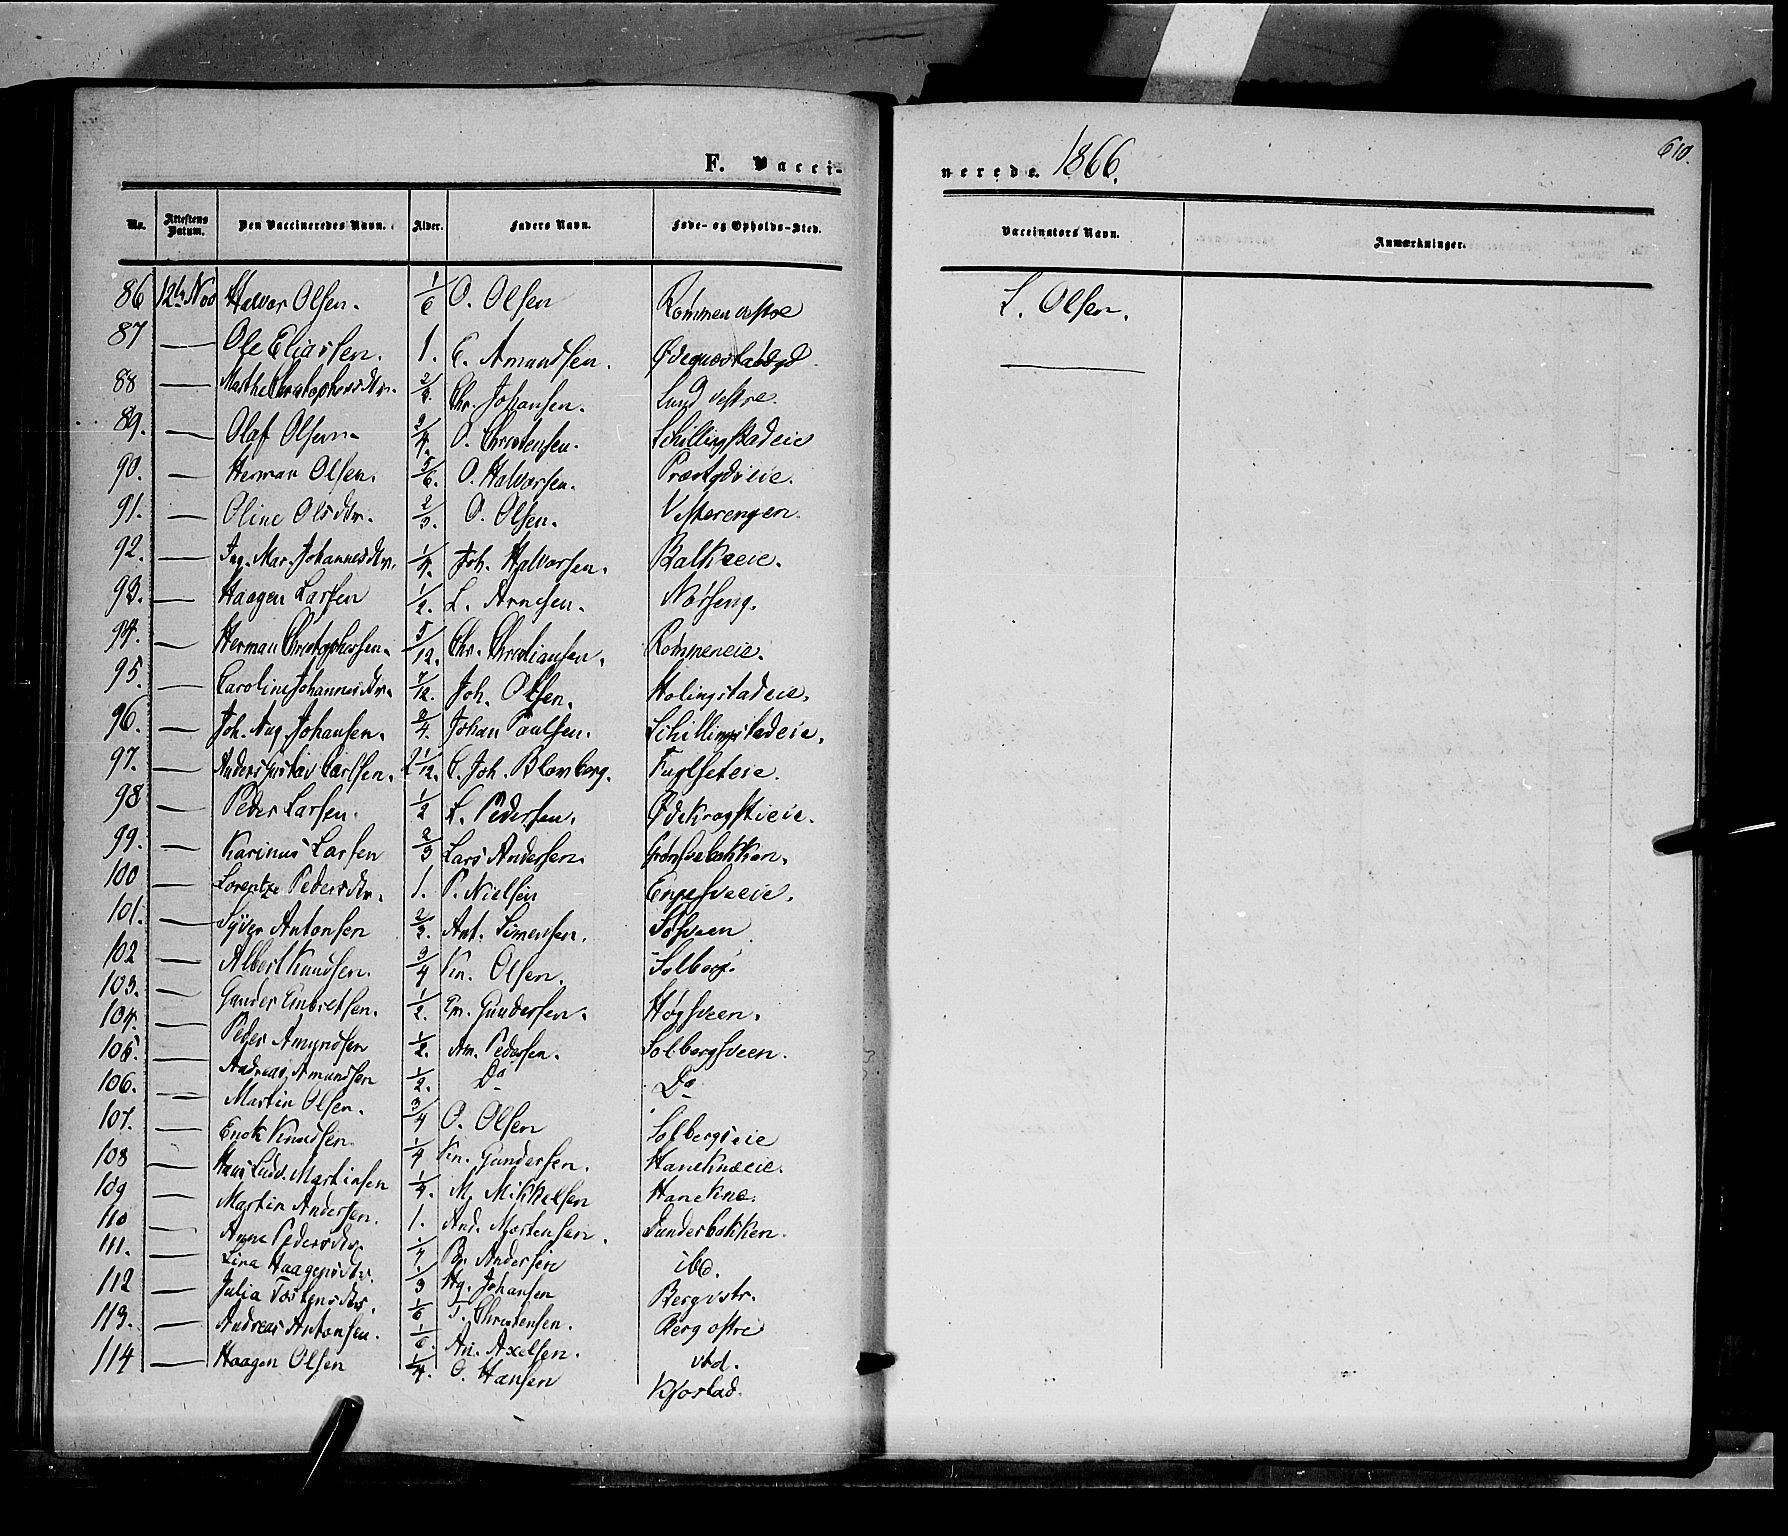 F. Vacci-
nerede. 1866.
610.
No. Attestens Datum. Den Vaccineredes Navn. Alder. Faders Navn. Føde- og Opholds-Sted. Vaccinators Navn. Anmærkninger.
86 12te Nov Halvor Olsen. 1/6 O. Olsen Rømmen vestre L. Olsen.
87 — Ole Eliassen. 1. E. Amundsen. —
88 — Marthe Christophersdtr. Chr. Johansen. Lund vestre.
89. — Olaf Olsen. 3/4. O. Christensen. Schillingstadeie
90. — Herman Olsen. 5/6. O. Halvorsen. Præstgdseie.
91. — Oline Olsdtr. 2/3. O. Olsen. Vesterengen.
92. — Ing. Mar. Johannesdtr. 1/4. Joh. Halvorsen. Balkeeie.
93. — Haagen Larsen 1/2. L. Arnesen. Nørseng.
94. — Herman Christophersen. 5/12. Chr. Christiansen. Rømmeneie.
95. — Caroline Johannesdtr. 7/12. Joh. Olsen. Holingstadeie.
96. — Joh. Aug. Johansen. 3/4. Johan Paulsen. Schillingstadeie.
97. — Anders Gustav Carlsen. 2 1/12. C. Joh. Blomberg. Fuglseteie.
98 — Peder Larsen. 1/2 L. Pedersen. Ødekrogstieie.
99. — Karinus Larsen 2/3 Lars Andersen. Grønsvebakken.
100 — Lorentze Pedersdtr. 1. P. Nielsen Engesveeie.
101. — Syver Antonsen Ant. Simensen. Søsveen
102 — Albert Knudsen. 3/4 Kn. Olsen. Solberg.
103. — Gunder Embretsen. 1/2. Em. Gundersen. Høgsveen.
104. — Peder Amundsen 1/2. Am. Pedersen. Solbergsveen.
105. — Andreas Amundsen 1/2. Do Do
106. — Martin Olsen. 3/4 O. Olsen Solbergseie
107. — Enok Knudsen. 1/4 Kn. Gundersen. Hanekneeie.
108 — Hans Ludv. Martinsen 1/4. M. Mikkelsen Hanekne.
109 — Martin Andersen. 1. And. Mortensen. Dunderbakken.
110 — Anne Pedersdtr. 1/4. Pr. Andersen ibd.
111. — Lina Haagensdtr. 1/3 Hg. Johansen Berg vstr.
112 — Julia Tostensdtr. 1/6 T. Christensen. Berg østre
113. — Andreas Antonsen. 1/6. An. Axelsen. ibd.
114 — Haagen Olsen 1/4. O. Hansen Kjøstad.